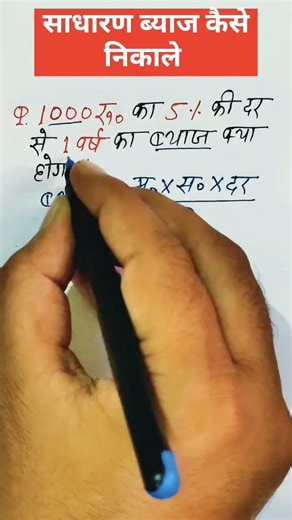 साधारण ब्याज कैसे
निकाले
Q. 1000 रु० का 5% की दर
से 1 वर्ष का ब्याज क्या
होगा
मू० X स० X दर